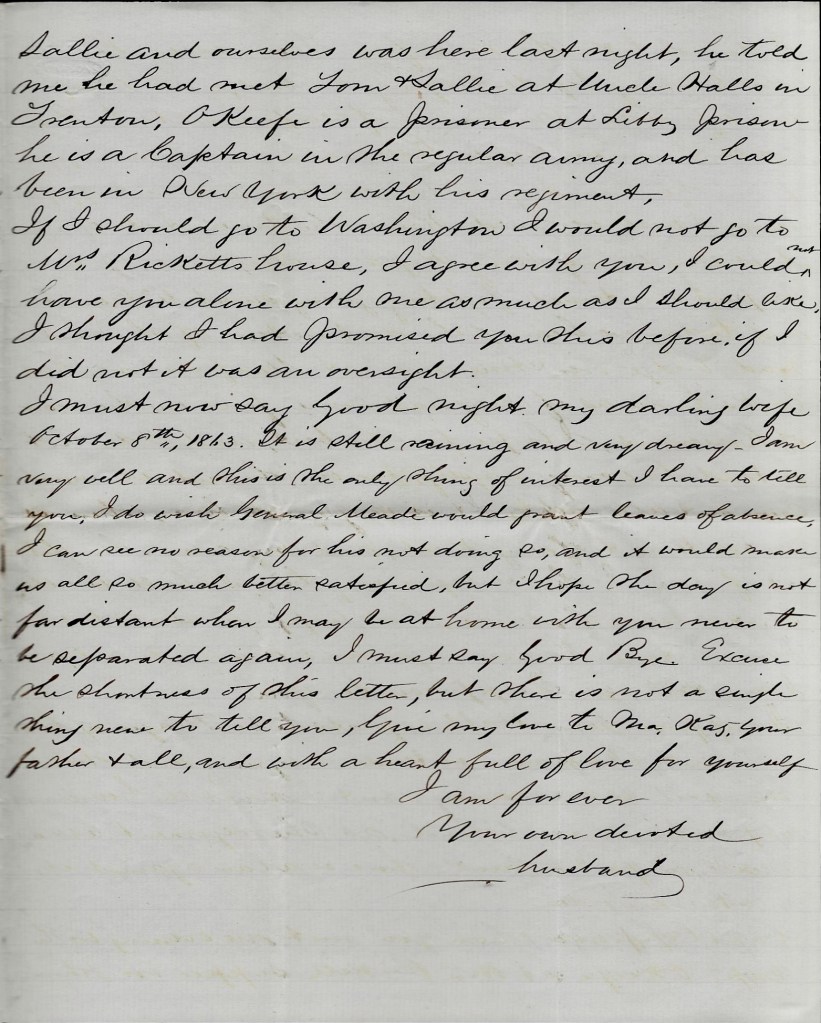 Sallie and ourselves was here last night, he told
me he had met Tom & Sallie at Uncle Halls in
Trenton, OKeefe is a prisoner at Libby prison
he is a Captain in the regular army, and has
been in New York with his regiment,
If I should go to Washington I would not go to
Mrs Ricketts house, I agree with you, I could not
have you alone with me as much as I should like,
I thought I had promised you this before, if I
did not it was an oversight.
I must now say Good night my darling wife
October 8th, 1863. It is still raining and very dreary - I am
very well and this is the only thing of interest I have to tell
you, I do wish General Meade would grant leaves of absence,
I can see no reason for his not doing so, and it would make
us all so much better satisfied, but I hope the day is not
far distant when I may be at home with you never to
be separated again, I must say Good Bye. Excuse
the shortness of this letter, but there is not a single
thing new to tell you, Give my love to Ma, Kaz, your
father & all, and with a heart full of love for yourself
I am for ever
Your own devoted
husband